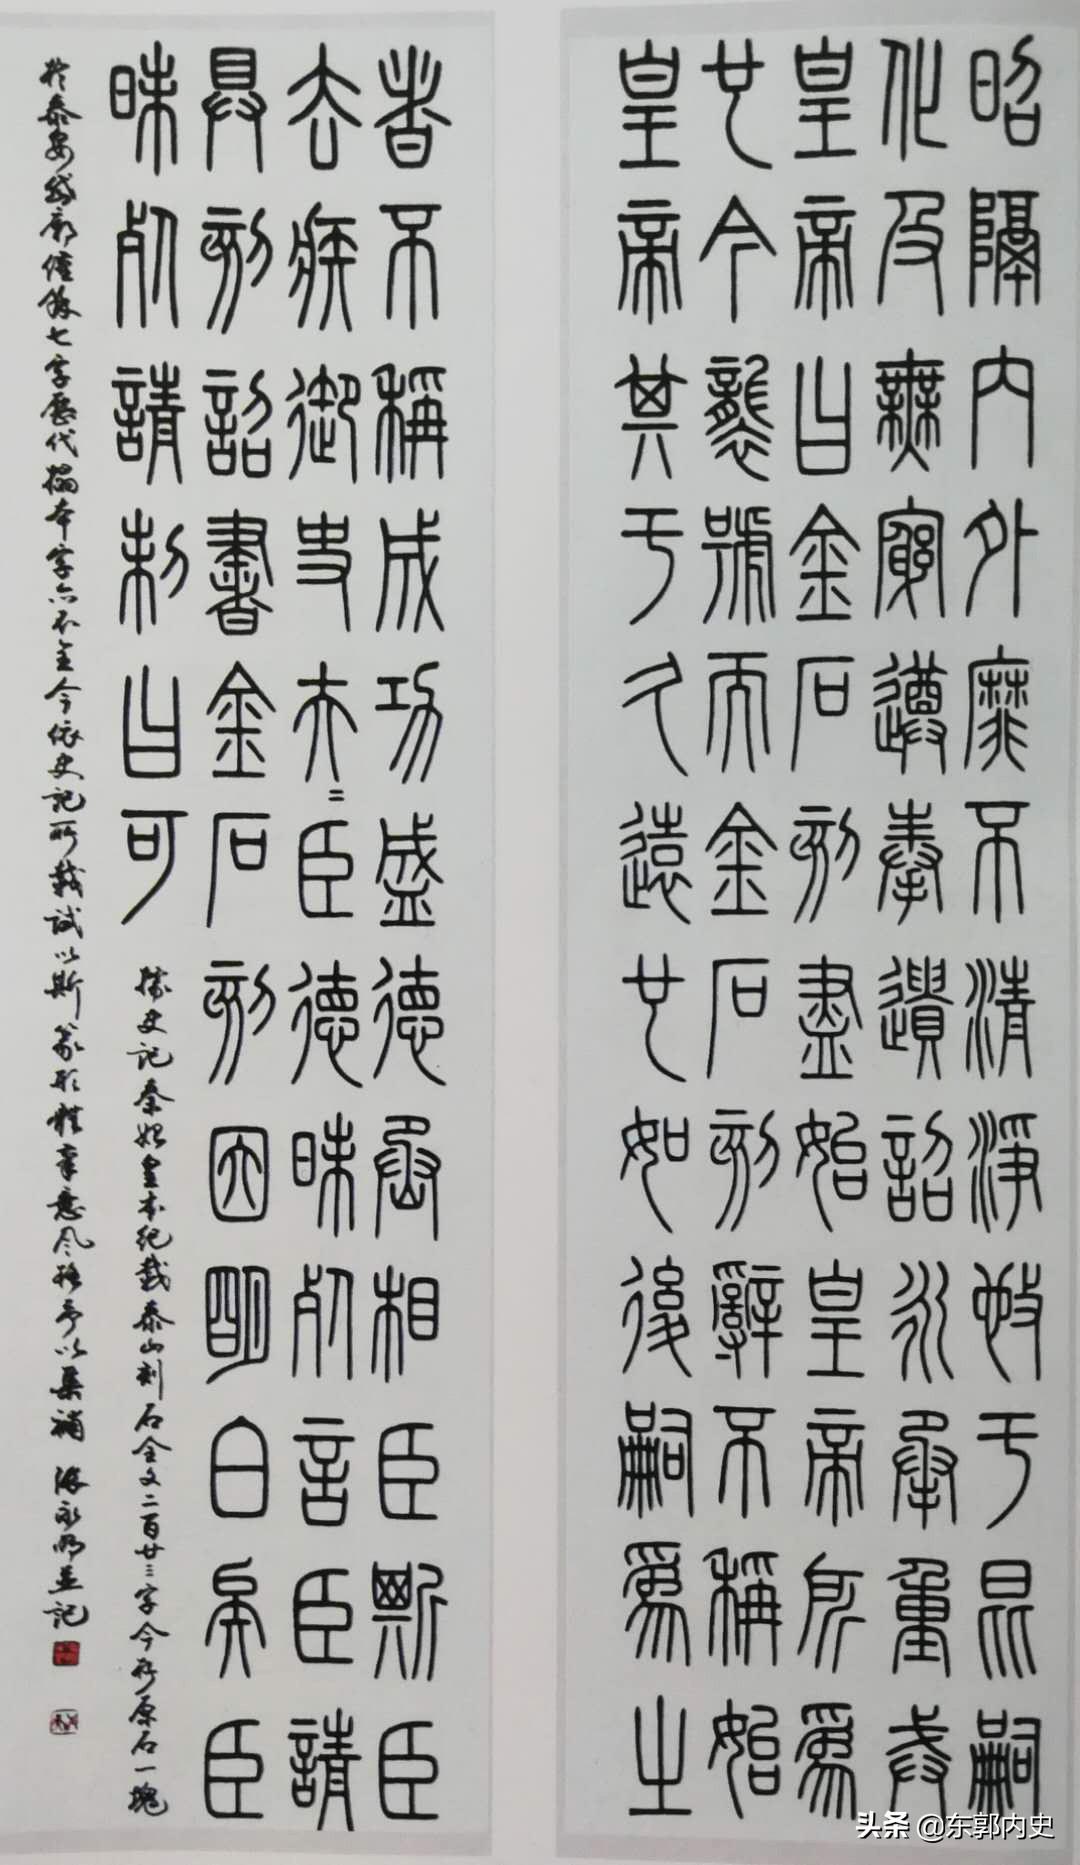 昭隔内外靡不清淨施于昆嗣
化及無窮遵奉遺詔永承重戒
皇帝曰金石刻盡始皇帝所為
也今襲號而金石刻辭不稱始
皇帝其于久遠也如後嗣為之
者不稱成功盛德丞相臣斯臣
去疾御史夫=臣德昧死言臣請
具刻詔書金石刻因明白矣臣
昧死請制曰可
據史記秦始皇本紀載泰山刻石全文二百廿三字今存原石一塊
於泰安岱廟僅餘七字歷代搨本字亦不全今依史記所載試以斯篆形體筆意風格予以集補 永明並記
头条 @东郭内史